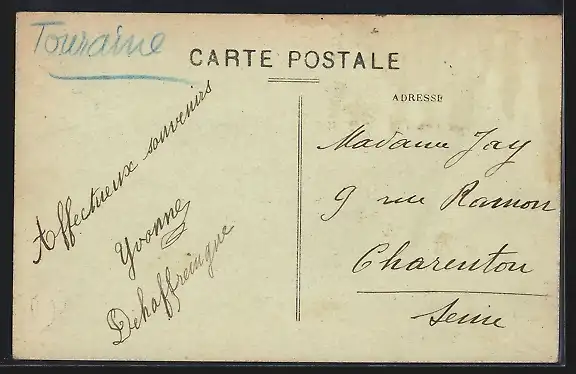 Touraine
CARTE POSTALE
ADRESSE
Affectueux souvenirs
Yvonne
Dehaffreingue
Madame Jay
9 rue Ramon
Charenton
Seine